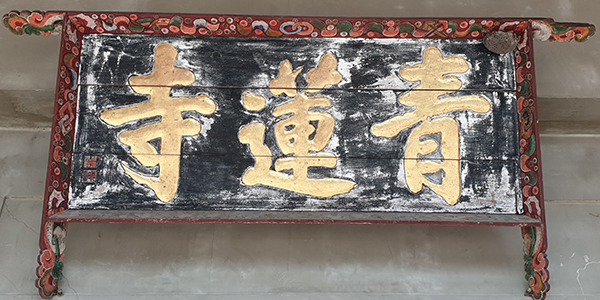 青蓮寺